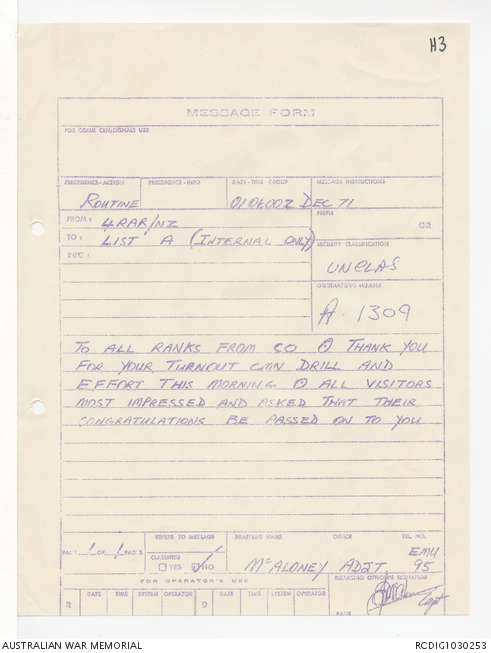 H3
MESSAGE FORM
FOR COMM CEN/SIGNALS USE
PRECEDENCE-ACTION PRECEDENCE-INFO DATE-TIME GROUP MESSAGE INSTRUCTIONS
ROUTINE 010600Z DEC 71
FROM: 4RAR/NZ PREFIX GR
TO: LIST A (INTERNAL ONLY) SECURITY CLASSIFICATION
UNCLAS
ORIGINATORS NUMBER
A. 1309
TO ALL RANKS FROM CO THANK YOU
FOR YOUR TURNOUT DRILL AND
EFFORT THIS MORNING ALL VISITORS
MOST IMPRESSED AND ASKED THAT THEIR
CONGRATULATIONS BE PASSED ON TO YOU
REFERS TO MESSAGE DRAFTERS NAME OFFICE TEL. NO.
PAGE 1 OF 1 PAGES CLASSIFIED YES NO McALONEY ADJT EMU 95
FOR OPERATOR'S USE
R DATE TIME SYSTEM OPERATOR D DATE TIME SYSTEM OPERATOR RANK Capt
AUSTRALIAN WAR MEMORIAL RCDIG1030253